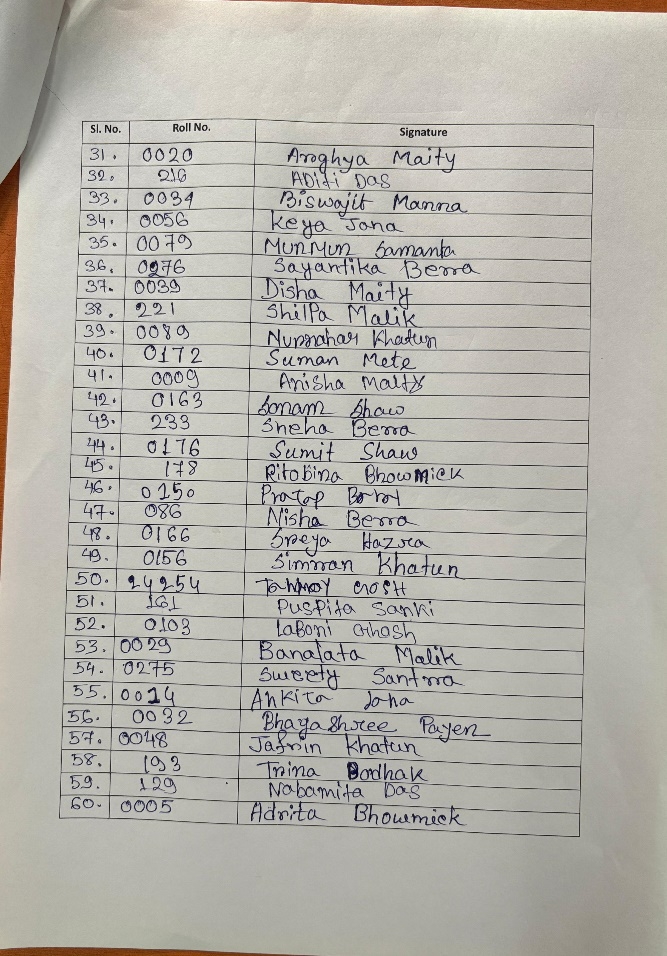 Sl. No. Roll No. Signature
31. 0020 Arghya Maity
32. 216 ADiti Das
33. 0034 Biswajit Manna
34. 0056 Keya Jana
35. 0079 MunMun Samanta
36. 0276 Sayantika Berra
37. 0039 Disha Maity
38. 221 Shilpa Malik
39. 0089 Khatun
40. 0172 Suman Mete
41. 0009 Anisha Maity
42. 0163 Sonam Shaw
43. 233 Sneha Berra
44. 0176 Sumit Shaw
45. 178 Ritobina Bhowmick
46. 0150 Pratap
47. 086 Nisha Berra
48. 0166 Sreya Hazra
49. 0156 Simran Khatun
50. 24254 GHOSH
51. 161 Puspita Sanki
52. 0103 Laboni Ghosh
53. 0029 Banalata Malik
54. 0275 Sweety Santra
55. 0014 Ankita Jana
56. 0032 Bhagashree Payen
57. 0048 Jasmin Khatun
58. 193 Trina Bodhak
59. 129 Nabamita Das
60. 0005 Adrita Bhowmick